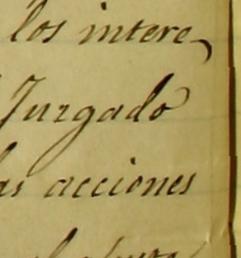 los intere,
Jurgado
as acciones